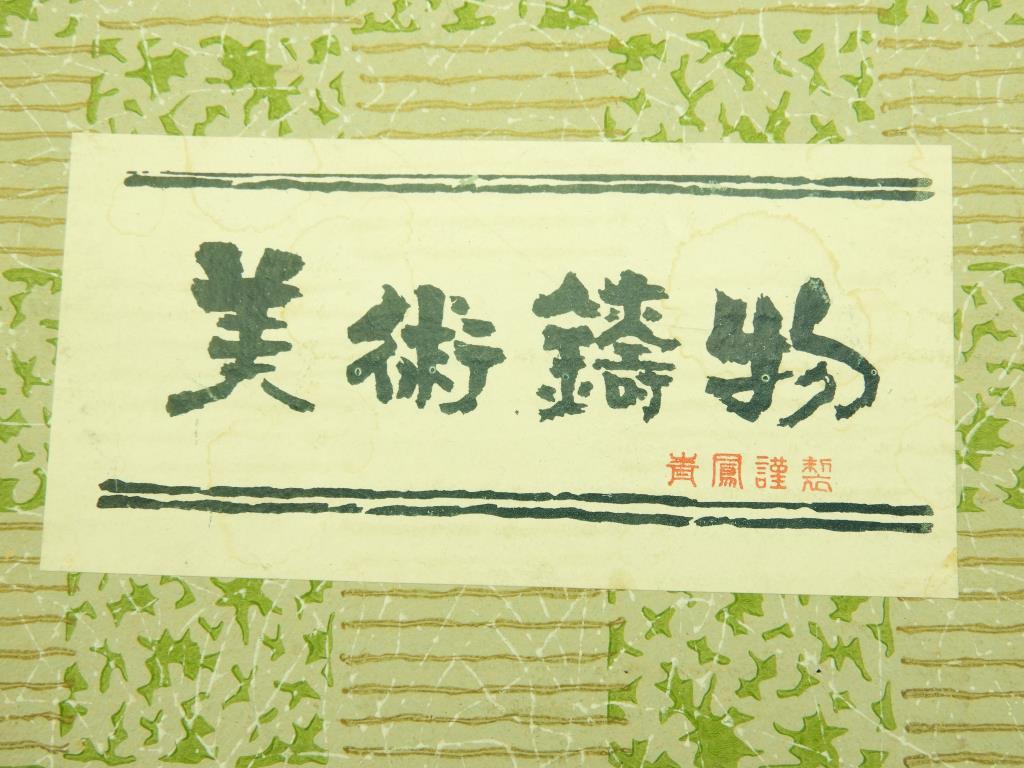 美術鑄物
青鳳謹製